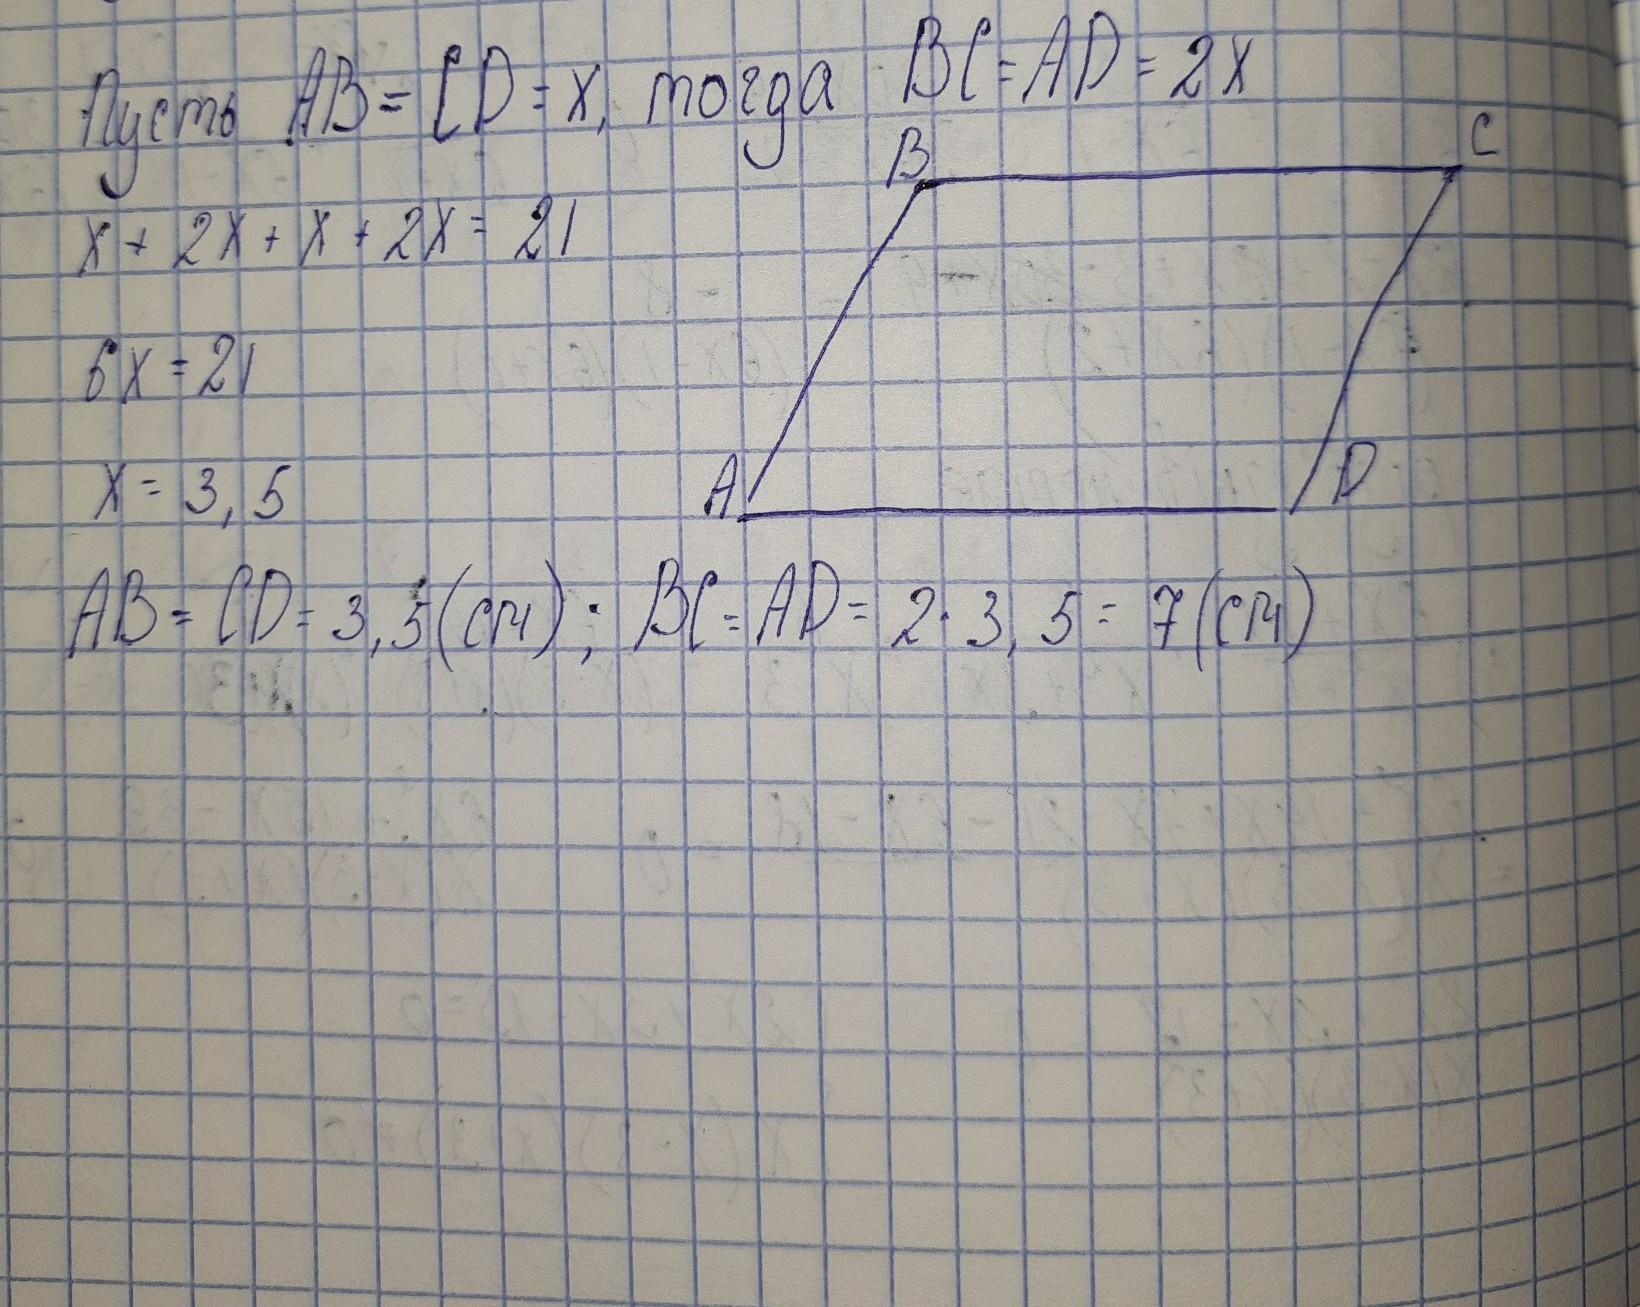 Пусть AB = CD = x, тогда BC = AD = 2x
B C
x + 2x + x + 2x = 21
6x = 21
A D
x = 3,5
AB = CD = 3,5(см); BC = AD = 2·3,5 = 7(см)